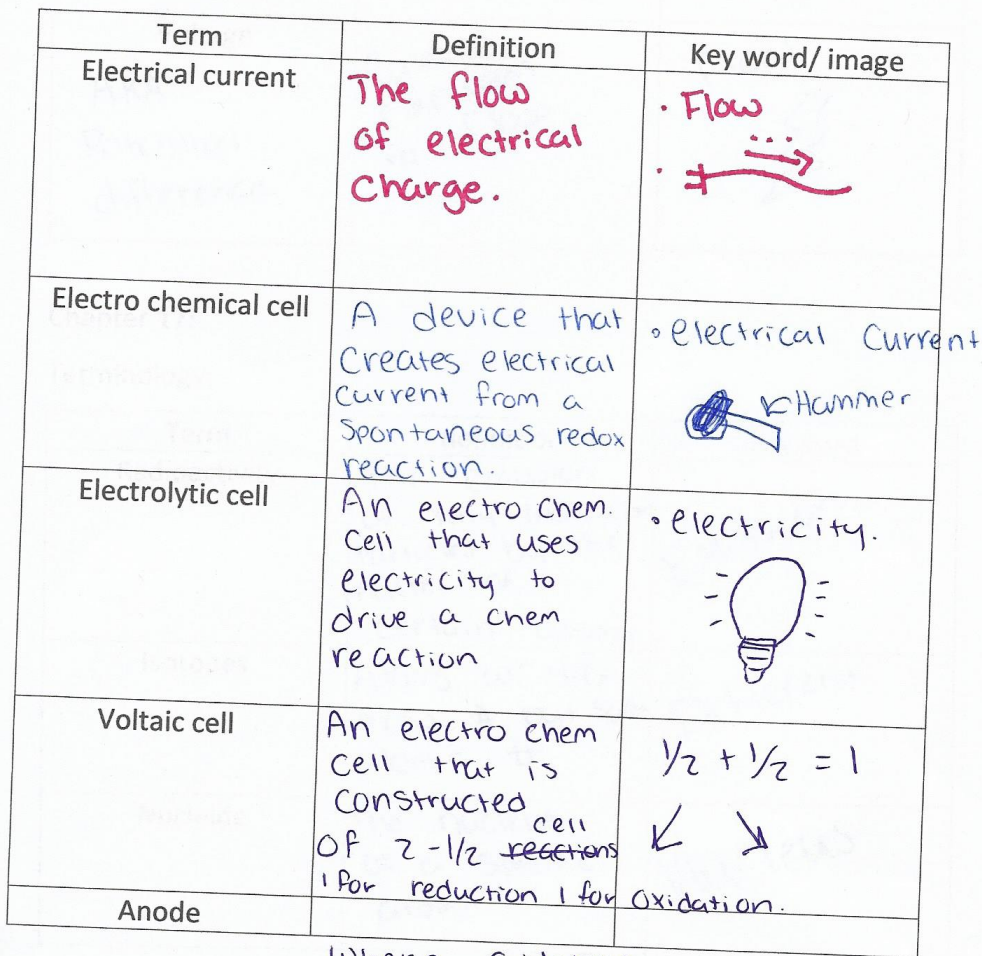 Term Definition Key word/ image
Electrical current
The flow
of electrical
Charge.
• Flow
•
Electro chemical cell
A device that
Creates electrical
Current from a
Spontaneous redox
reaction.
• electrical Current
Hammer
Electrolytic cell
An electro chem.
Cell that uses
electricity to
drive a chem
reaction
• electricity.
Voltaic cell
An electro chem
Cell that is
constructed
cell
Of 2 - 1/2 reactions
1 for reduction 1 for Oxidation.
1/2 + 1/2 = 1
Anode
Where